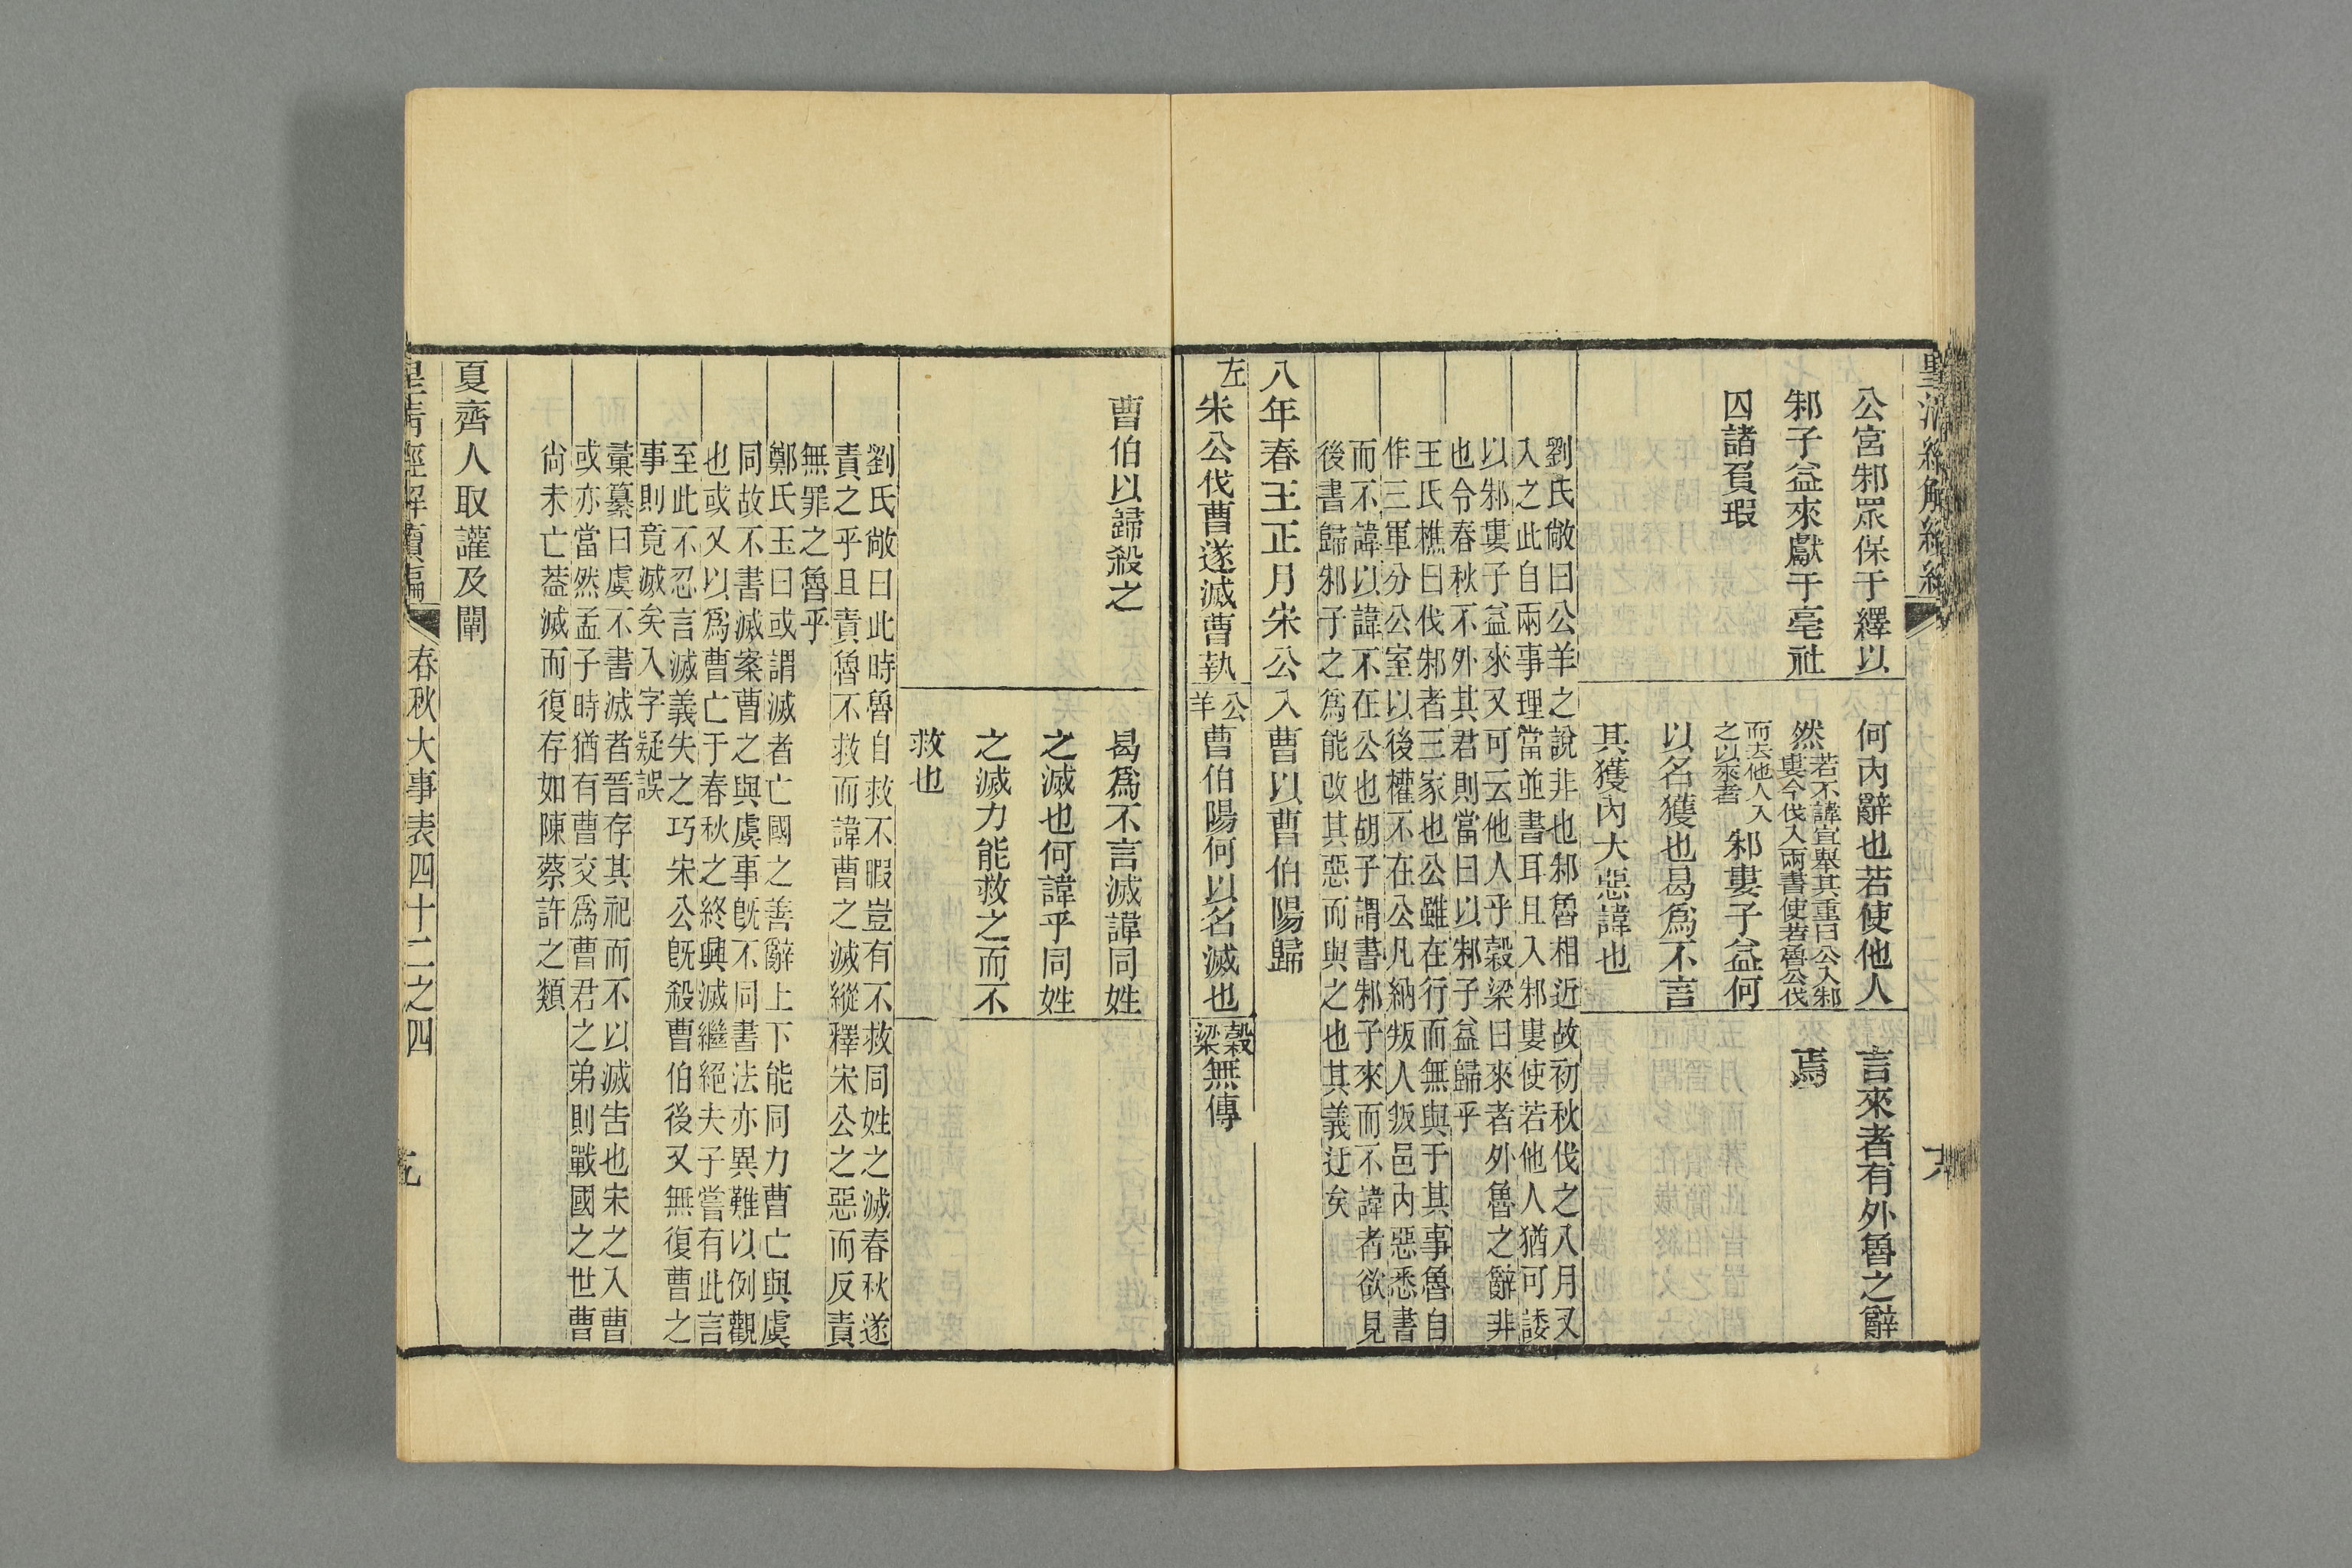 公宮邾眾保于繹以
邾子益來獻于亳社
囚諸負瑕
何內辭也若使他人
然
若不諱宜舉其重曰公入邾
婁今伐入兩書使若魯公伐
而去他人入
之以來者
邾婁子益何
以名獲也曷爲不言
其獲內大惡諱也
言來者有外魯之辭
焉
劉氏敞曰公羊之說非也邾魯相近故初秋伐之八月又
入之此自兩事理當並書耳且入邾婁使若他人猶可諉
以邾婁子益來又可云他人乎穀梁曰來者外魯之辭非
也令春秋不外其君則當曰以邾子益歸乎
王氏樵曰伐邾者三家也公雖在行而無與于其事魯自
作三軍分公室以後權不在公凡納叛人叛邑內惡悉書
而不諱以諱不在公也胡子謂書邾子來而不諱者欲見
後書歸邾子之爲能改其惡而與之也其義迂矣
八年春王正月宋公入曹以曹伯陽歸
左
宋公伐曹遂滅曹執
公羊
曹伯陽何以名滅也
穀梁
無傳
曹伯以歸殺之
曷爲不言滅諱同姓
之滅也何諱乎同姓
之滅力能救之而不
救也
劉氏敞曰此時魯自救不暇豈有不救同姓之滅春秋遂
責之乎且責魯不救而諱曹之滅縱釋宋公之惡而反責
無罪之魯乎
鄭氏玉曰或謂滅者亡國之善辭上下能同力曹亡與虞
同故不書滅案曹之與虞事旣不同書法亦異難以例觀
也或又以爲曹亡于春秋之終興滅繼絕夫子嘗有此言
至此不忍言滅義失之巧宋公旣殺曹伯後又無復曹之
事則竟滅矣入字疑誤
彙纂曰虞不書滅者晉存其祀而不以滅告也宋之入曹
或亦當然孟子時猶有曹交爲曹君之弟則戰國之世曹
尙未亡葢滅而復存如陳蔡許之類
夏齊人取讙及闡
皇清經解續編
春秋大事表四十二之四